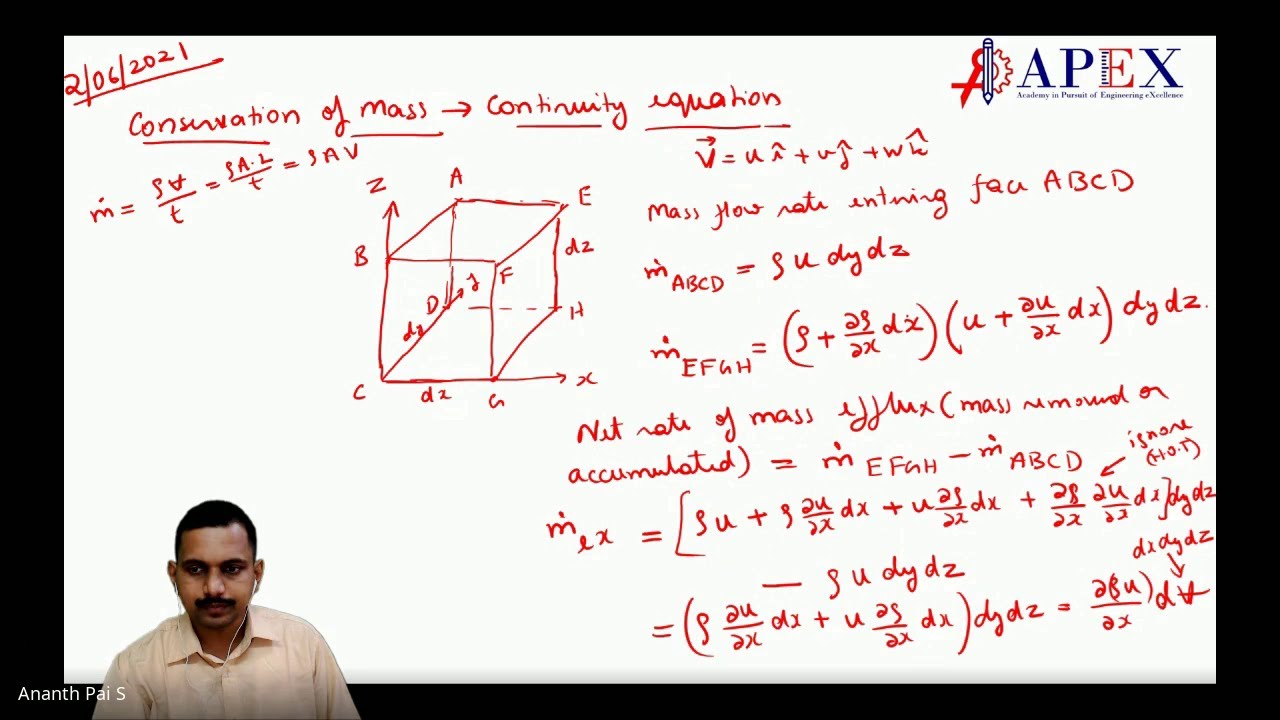 2/06/2021
APEX
Academy in Pursuit of Engineering eXcellence
Conservation of mass → Continuity equation
ṁ = ρV/t = ρA.L/t = ρAV
V⃗ = u î + v ĵ + w k̂
Mass flow rate entering face ABCD
ṁ ABCD = ρ u dy dz
ṁ EFGH = (ρ + ∂ρ/∂x dx)(u + ∂u/∂x dx) dy dz.
Z
A
E
B
F
dz
D
y
H
dy
C
dx
G
x
Net rate of mass efflux (mass removed or
accumulated) = ṁ EFGH − ṁ ABCD
ignore
(H.O.T)
ṁ ex = [ρu + ρ ∂u/∂x dx + u ∂ρ/∂x dx + ∂ρ/∂x ∂u/∂x dx] dy dz
− ρ u dy dz
dx dy dz
= (ρ ∂u/∂x dx + u ∂ρ/∂x dx) dy dz = ∂(ρu)/∂x dV
Ananth Pai S